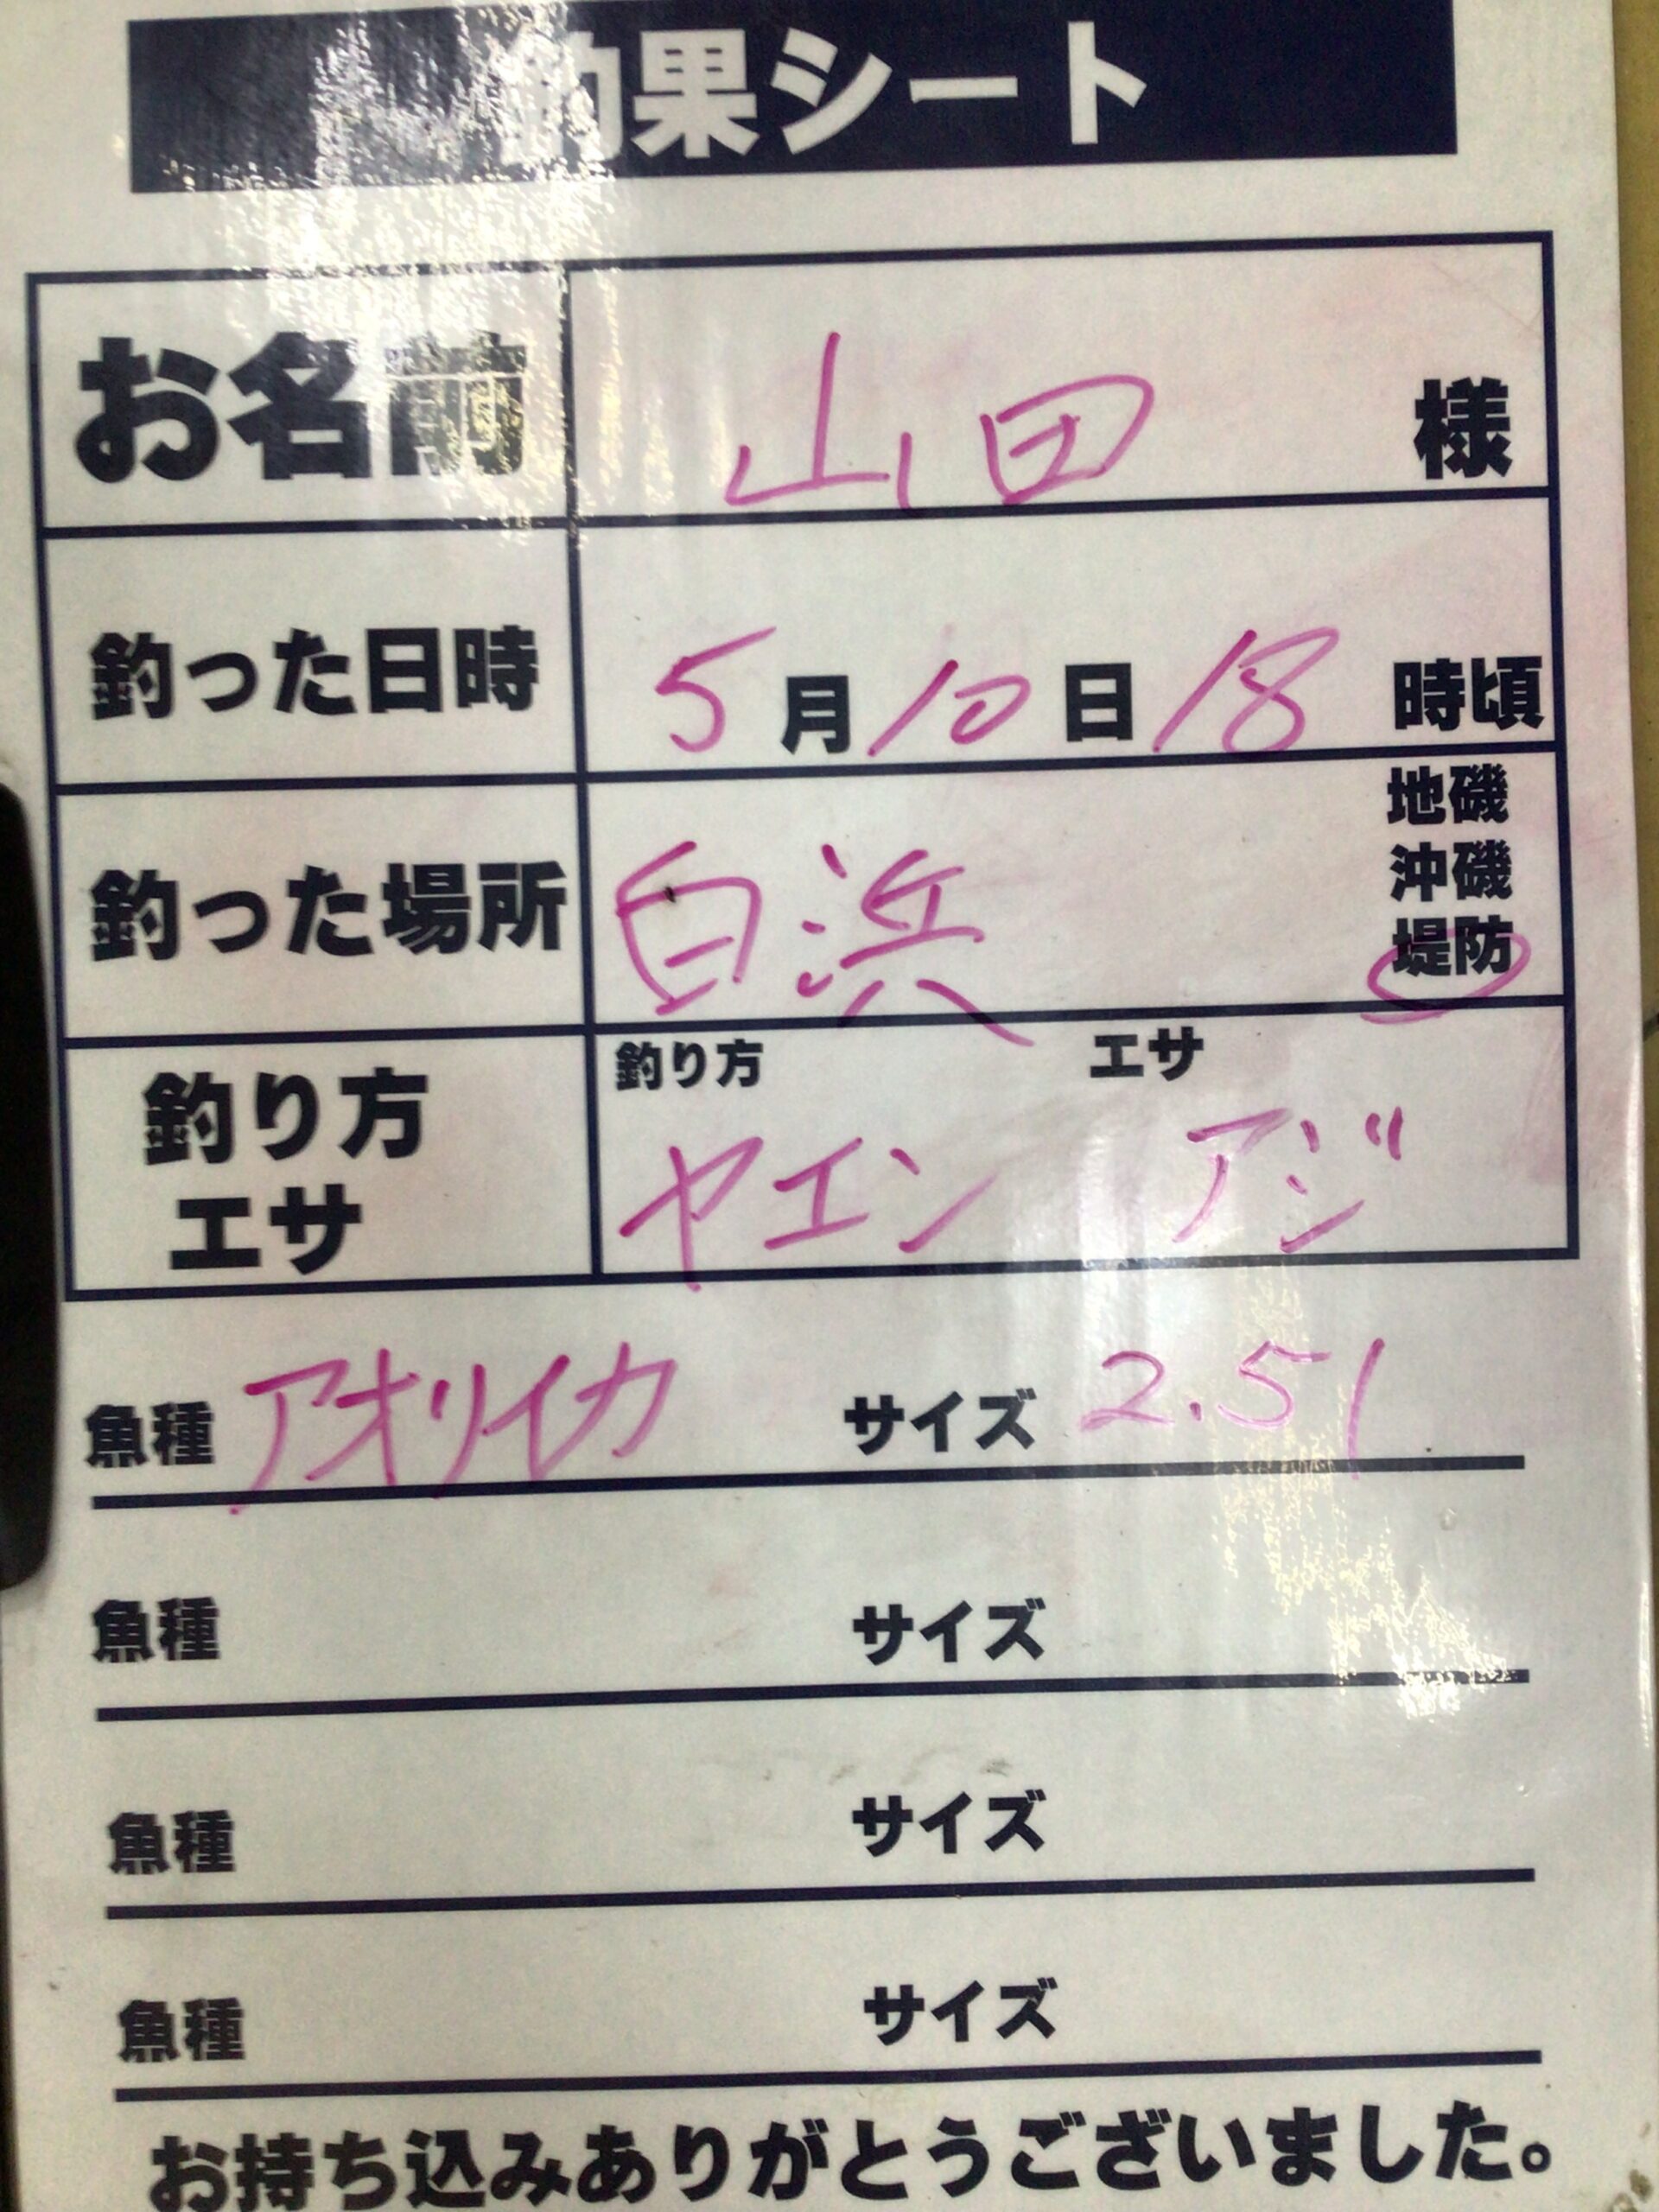 釣果シート
お名前 山田 様
釣った日時 5月10日18時頃
釣った場所 白浜 地磯
沖磯
堤防
釣り方 エサ
釣り方 ヤエン アジ
エサ
魚種 アオリイカ サイズ 2.51
魚種 サイズ
魚種 サイズ
魚種 サイズ
お持ち込みありがとうございました。